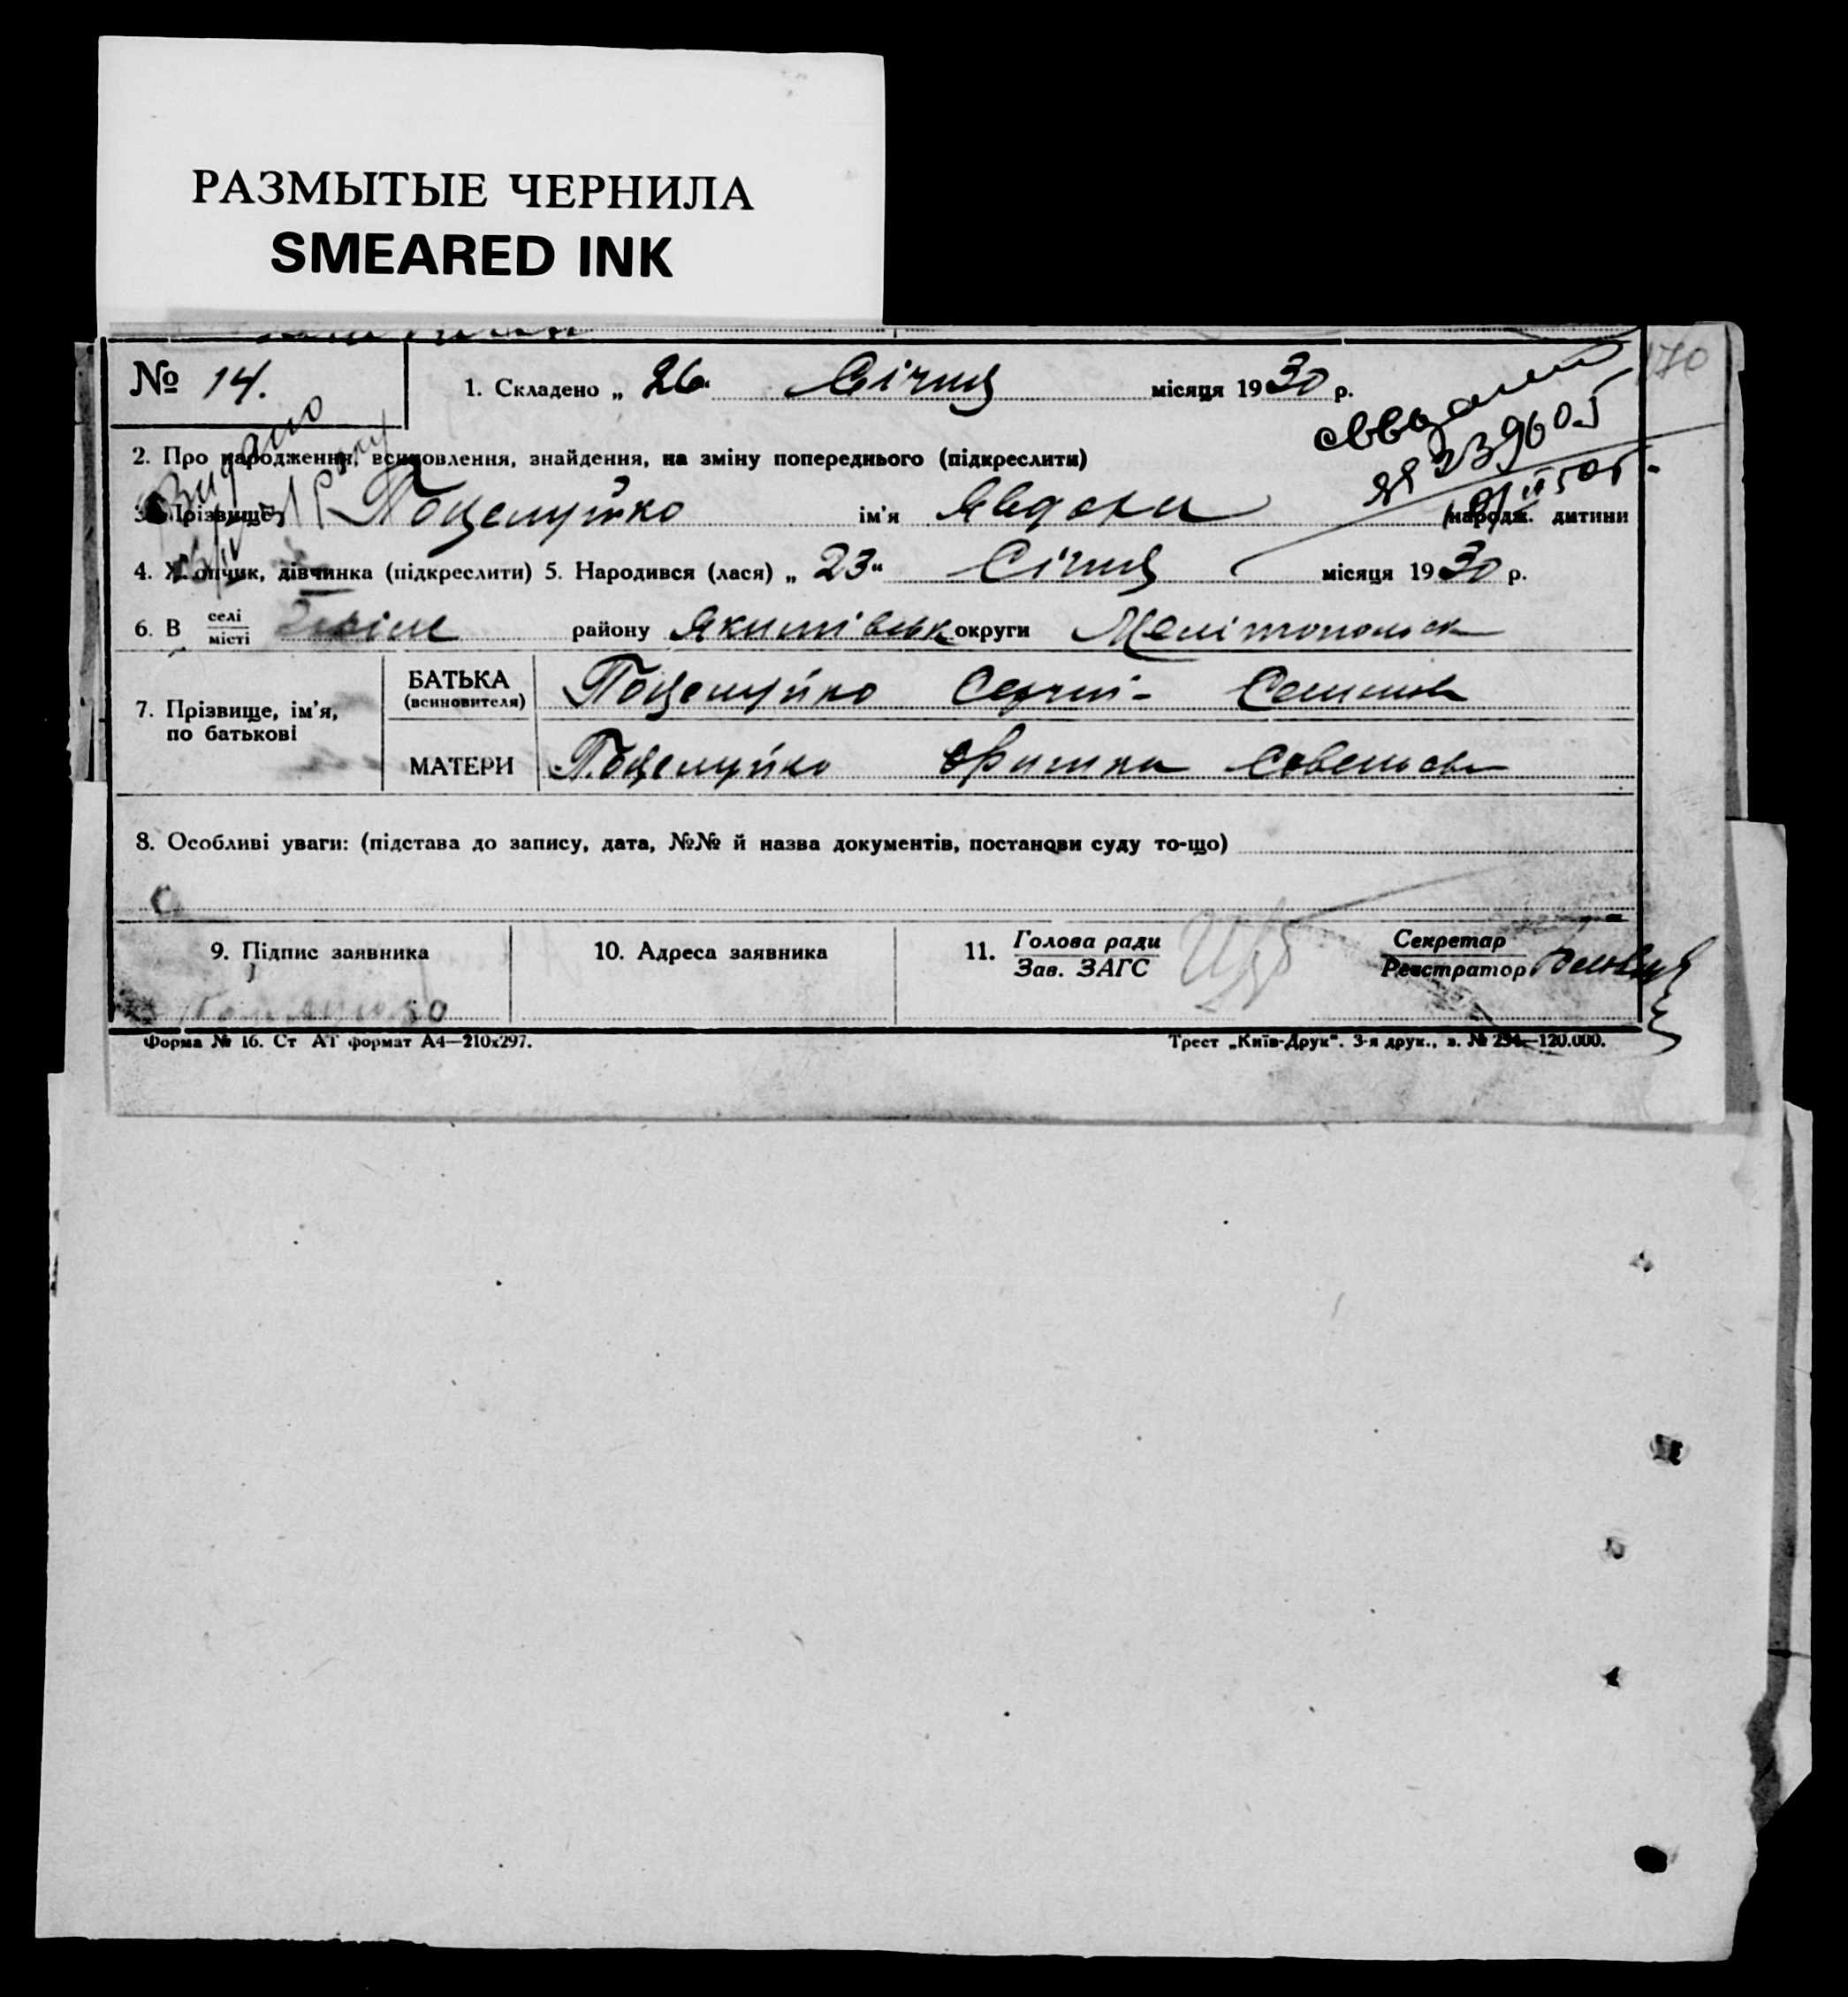 РАЗМЫТЫЕ ЧЕРНИЛА
SMEARED INK
№ 14.
1. Складено „ 26 “ Січня місяця 1930 р.
170
2. Про народження, всиновлення, знайдення, на зміну попереднього (підкреслити)
Видано
3. Прізвище Поцелуйко ім'я Явдоха (народж. дитини
4. Хлопчик, дівчинка (підкреслити) 5. Народився (лася) „ 23 “ Січня місяця 1930 р.
6. В селі місті району Якимівськ округи Мелітопольск
7. Прізвище, ім'я, по батькові
БАТЬКА (всиновителя) Поцелуйко Сергій
МАТЕРИ Поцелуйко
8. Особливі уваги: (підстава до запису, дата, №№ й назва документів, постанови суду то-що)
9. Підпис заявника
10. Адреса заявника
11. Голова ради Зав. ЗАГС
Секретар Реєстратор
Форма № 16. Ст АТ формат А4—210x297.
Трест „Київ-Друк“. 3-я друк., з. № 294—120.000.